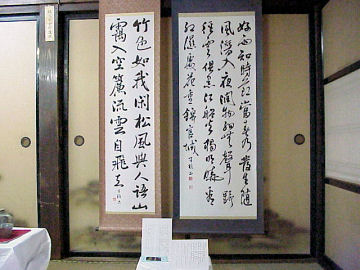 好雨知時節當春乃發生隨
風潛入夜潤物細無聲野
徑雲俱黑江船火獨明曉看
紅濕處花重錦官城
竹色如我閑松風與人語山
靄入空簾流雲自飛去